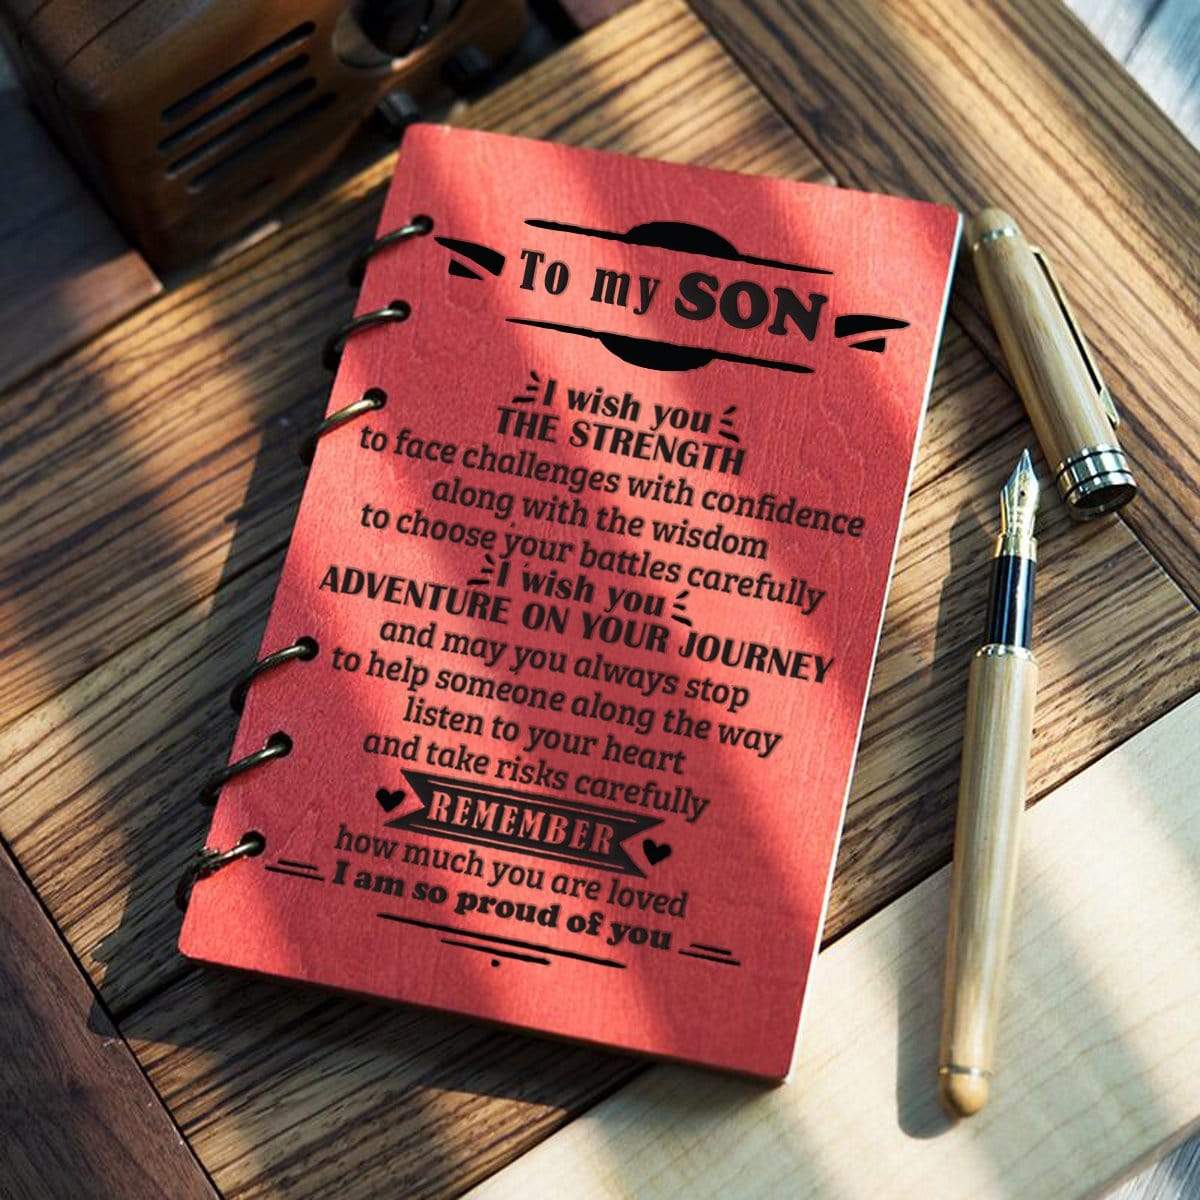 To my SON
I wish you
THE STRENGTH
to face challenges with confidence
along with the wisdom
to choose your battles carefully
I wish you
ADVENTURE ON YOUR JOURNEY
and may you always stop
to help someone along the way
listen to your heart
and take risks carefully
REMEMBER
how much you are loved
I am so proud of you